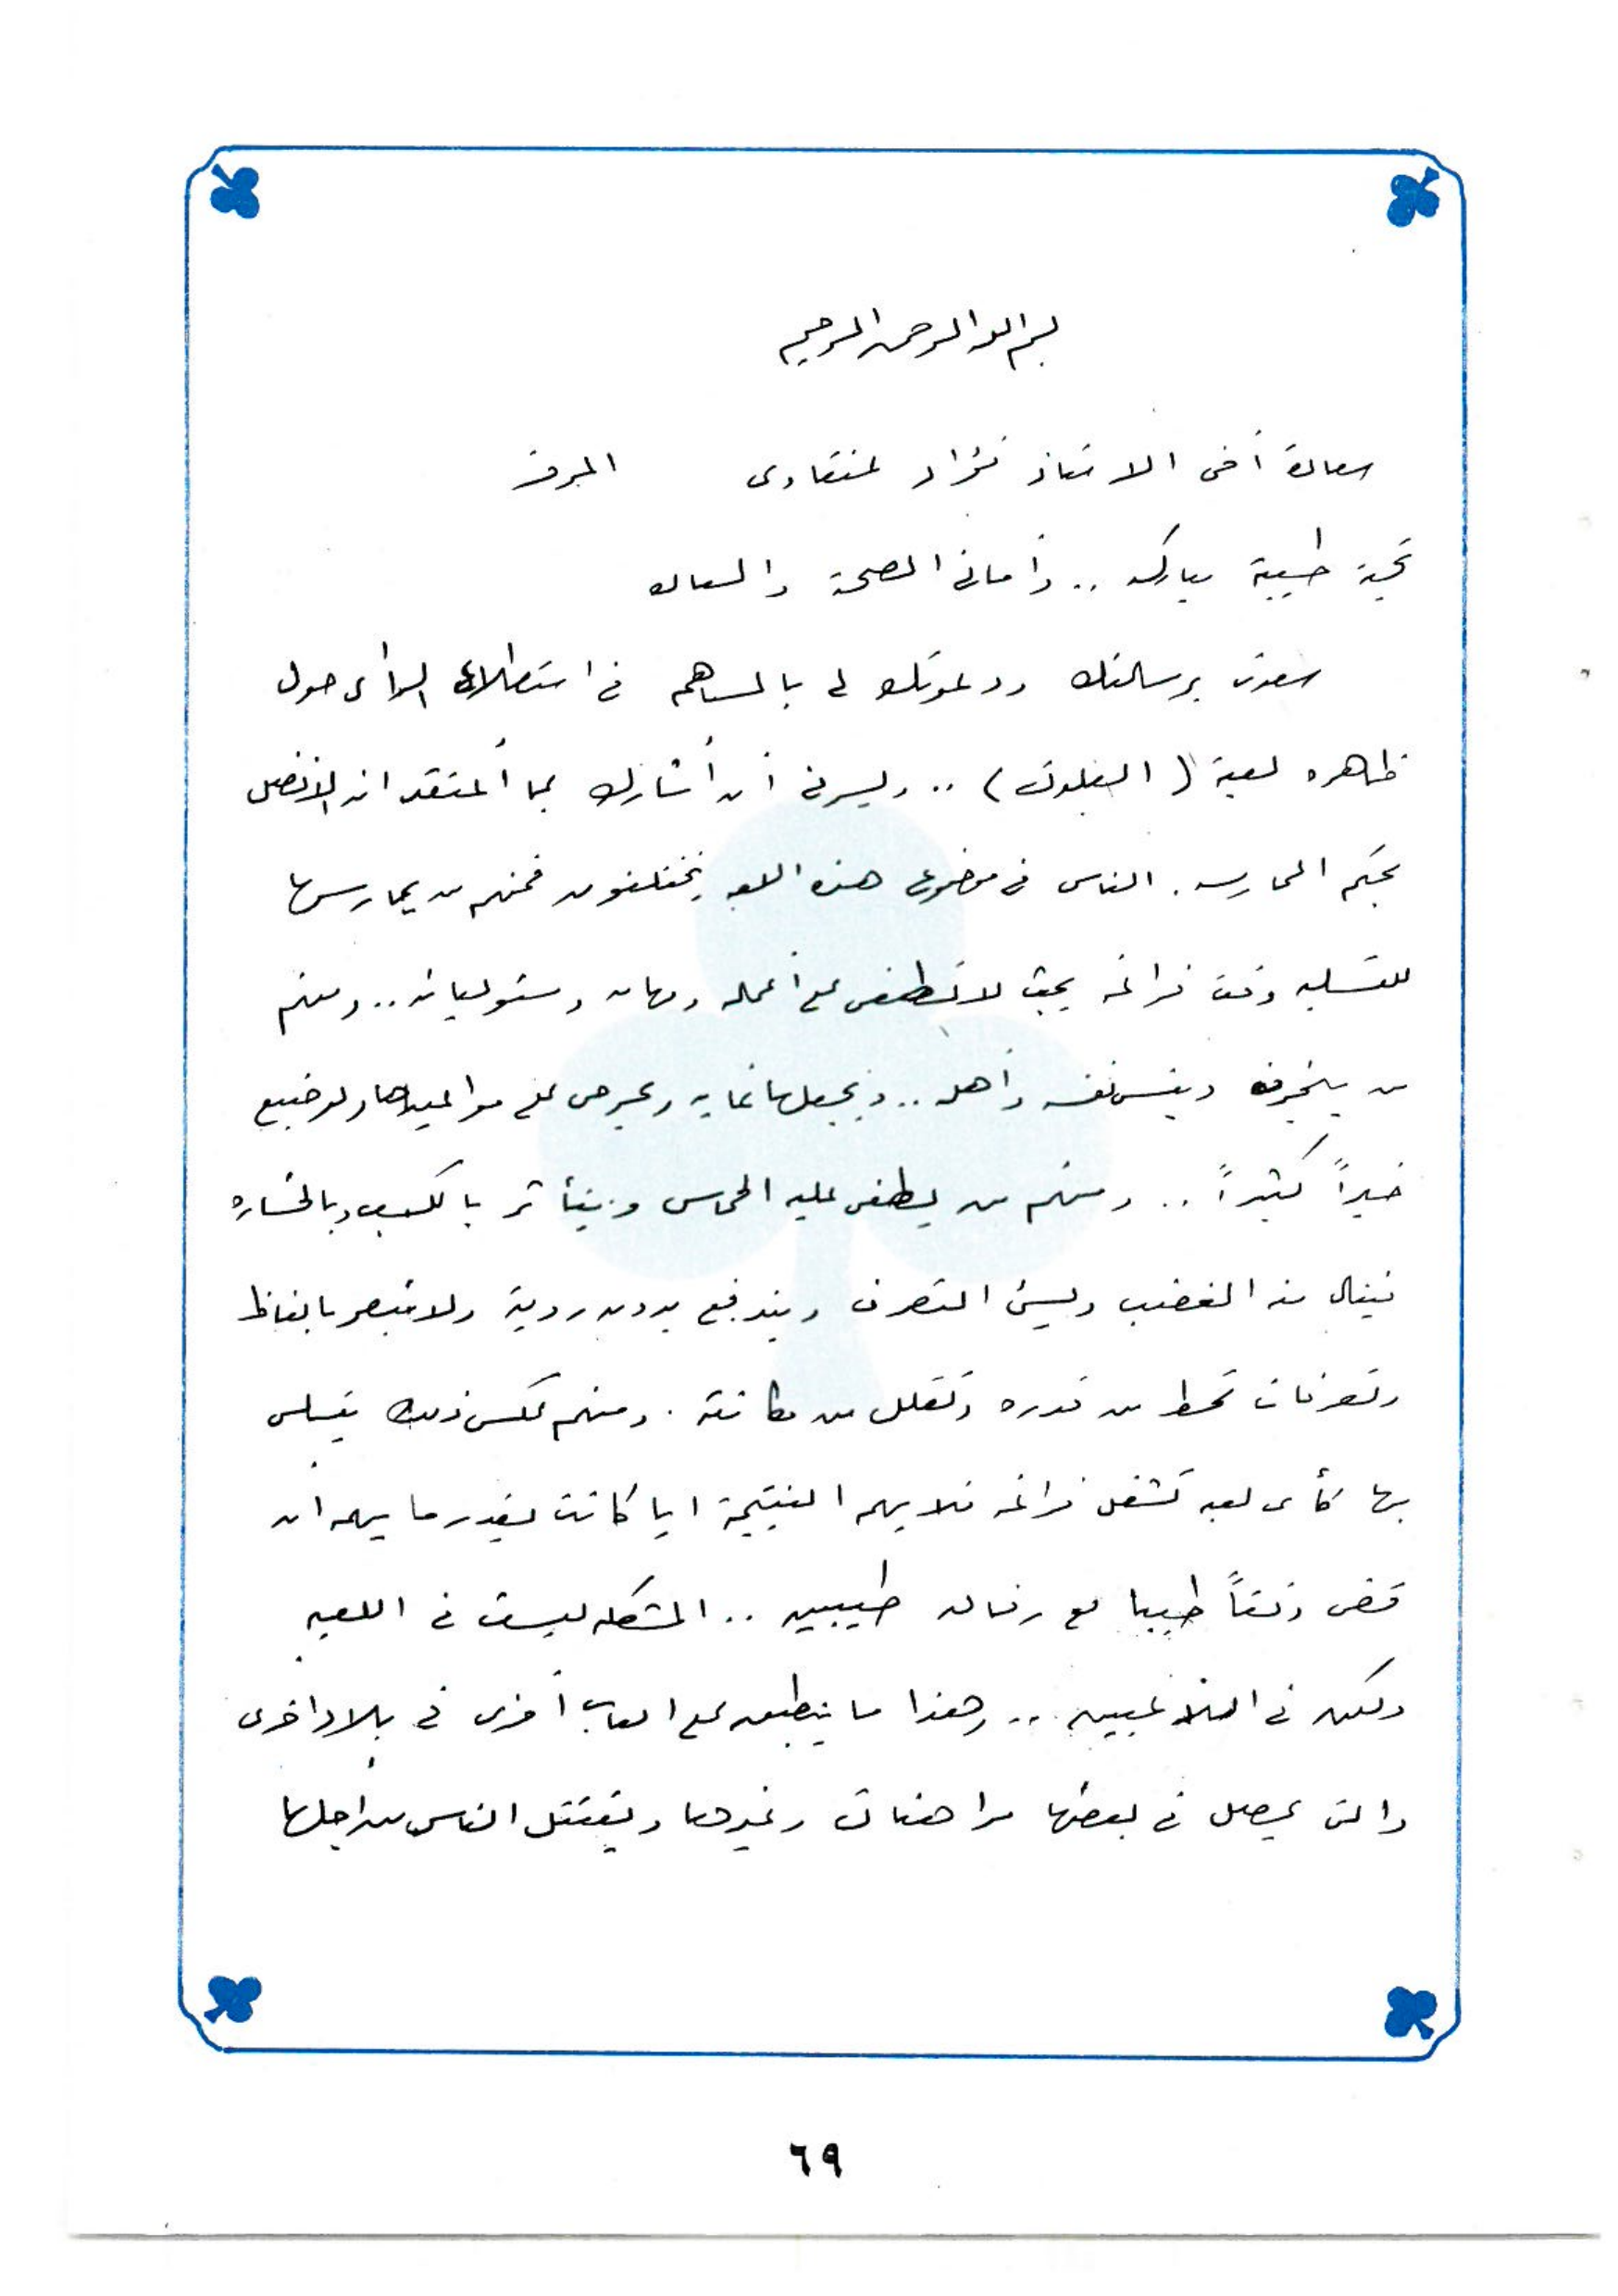 بسم الله الرحمن الرحيم
سعادة أخي الاستاذ فؤاد عنقاوى الموقر
تحية طيبة مباركه .. وأماني الصحة والسعاده
سعدت برسالتك ودعوتك لي بالمساهمه في استطلاع الرأى حول
ظاهره لعبة (البلوت) .. ويسرني أن أشارك بما أعتقد انه الافضل
بحكم الممارسه . الناس في موضوع هذه اللعبه يختلفون فمنهم من يمارسها
للتسليه وقت فراغه بحيث لا تطغى على أعماله ومهامه ومسئولياته .. ومنهم
من ينجرف وينسى نفسه وأهله .. ويجعلها غايه ويحرص على مواعيدها ولو ضيع
خيراً كثيراً .. ومنهم من يطغى عليه الحماس ويتأثر بالكسب وبالخساره
فينال منه الغضب ويسئ التصرف ويندفع بدون روية ولا تبصر بالفاظ
وتصرفات تحط من قدره وتقلل من مكانته . ومنهم عكس ذلك يتسلى
بها كأى لعبه تشغل فراغه فلا يهمه النتيجة ايا كانت بقدر ما يهمه ان
قضى وقتاً طيبا مع رفاق طيبين .. المشكله ليست في اللعبه
ولكن في اللاعبين .. وهذا ما ينطبق على العاب أخرى في بلاد اخرى
والتي يحصل في بعضها مراهنات وغيرها ويقتتل الناس من اجلها
٦٩